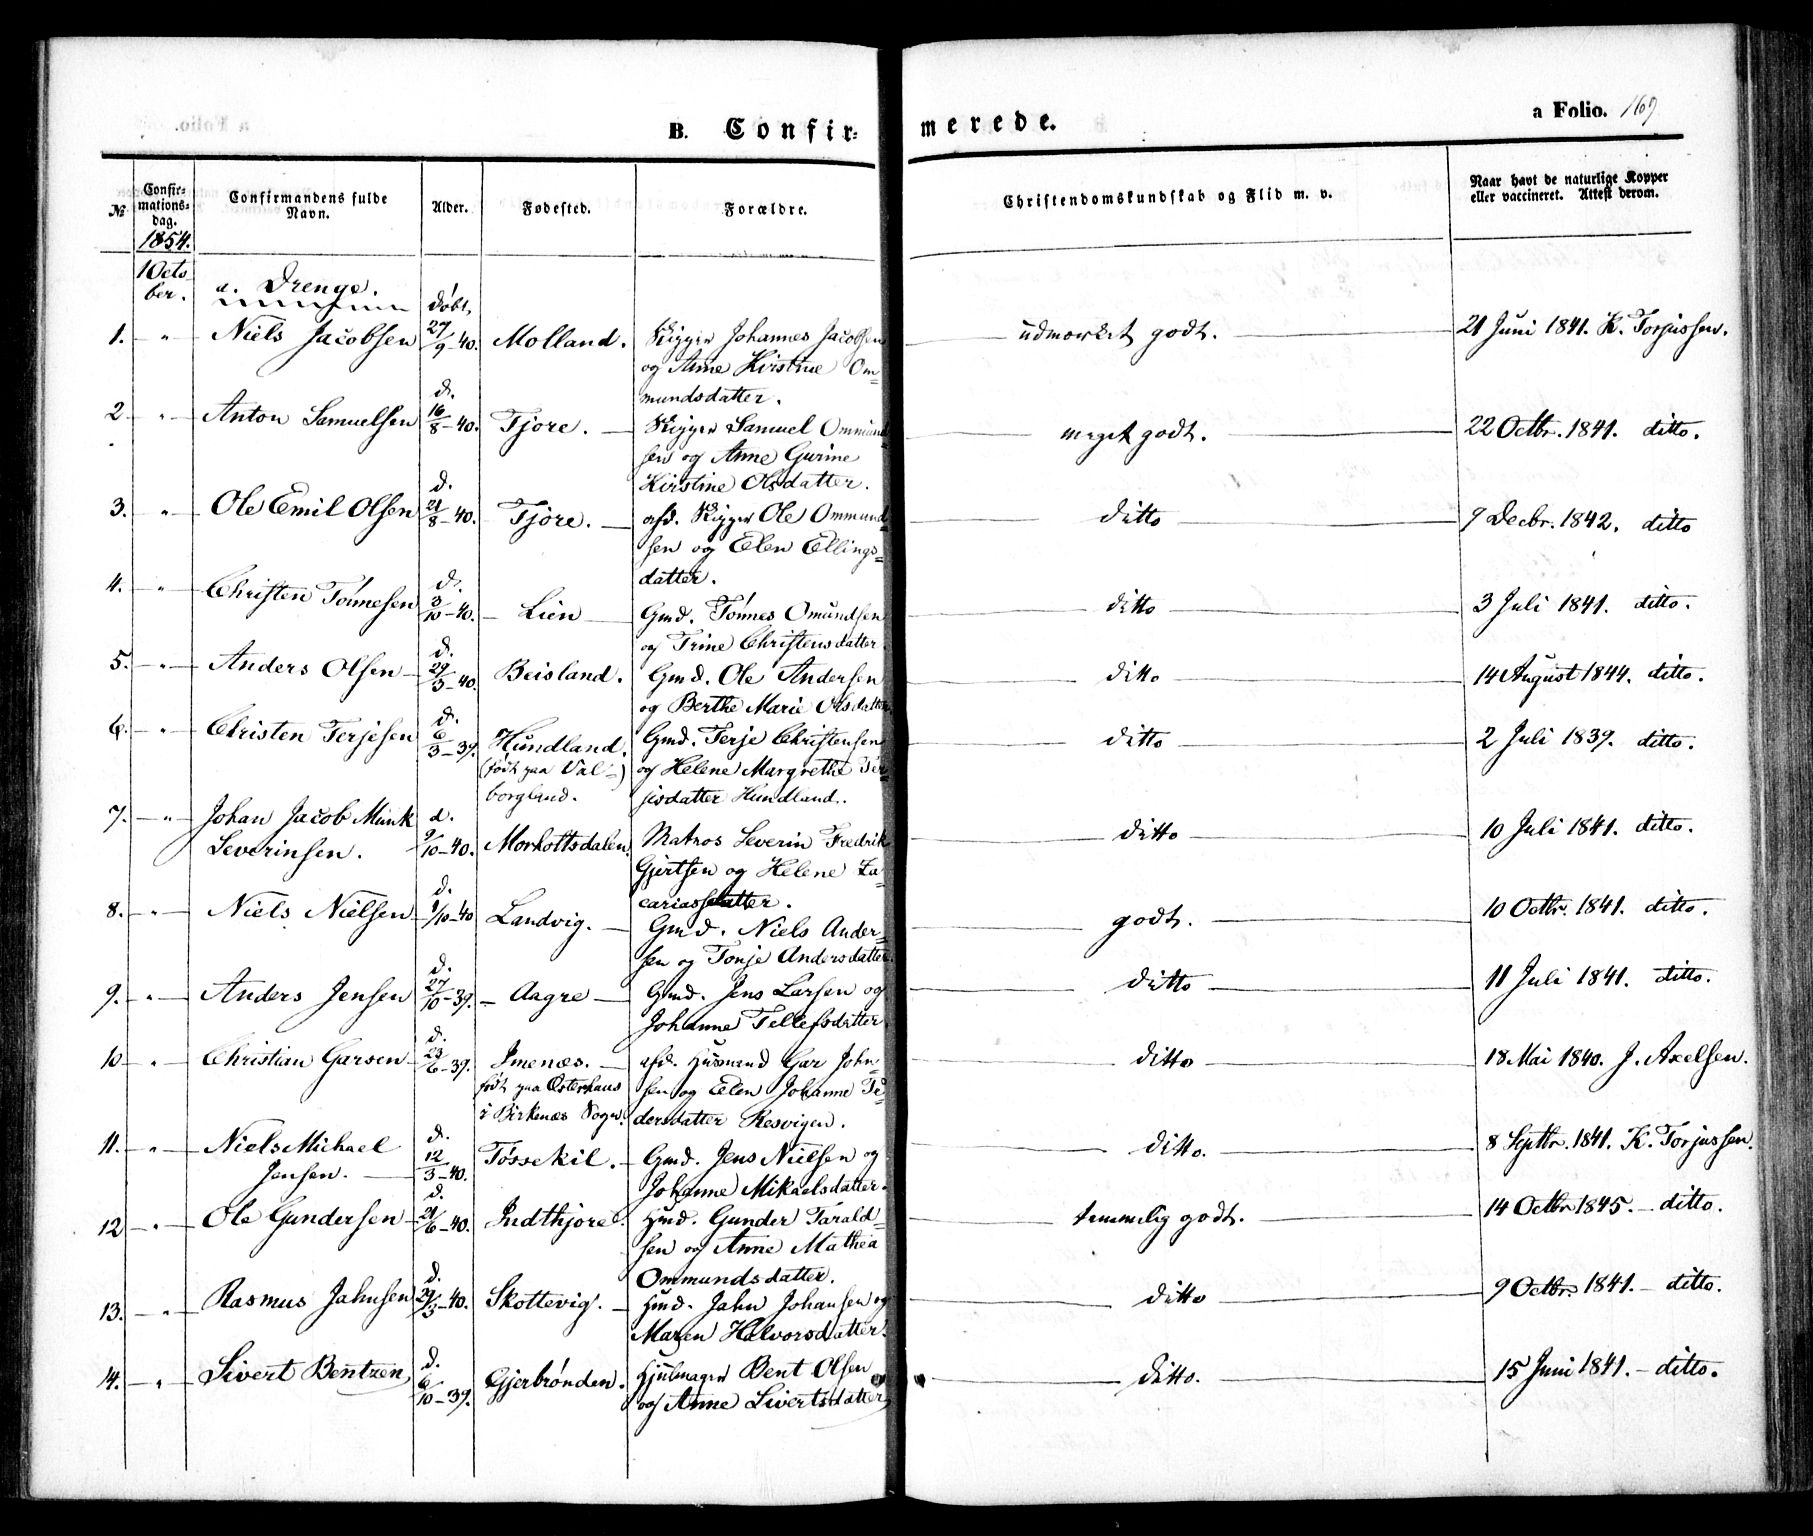 B. Confir-merede.
a Folio. 169
No
Confir-mations-dag.
Confirmandens fulde Navn.
Alder.
Fødested.
Forældre.
Christendomskundskab og Flid m. v.
Naar havt de naturlige Kopper eller vaccineret. Attest derom.
1854.
1 Octo-
ber.
a. Drenge.
døbt
1. " Niels Jacobsen 27/9-40. Molland. Skipper Johannes Jacobsen udmærket godt. 21 Juni 1841. K. Torjussen.
og Anne Kirstine Om-
mundsdatter.
2. " Anton Samuelsen d. 16/8-40. Fjøre. Skipper Samuel Ommund- meget godt. 22 Octbr. 1841. ditto.
sen og Anne Gurine
Kirstine Olsdatter.
3. " Ole Emil Olsen d. 21/8-40. Fjøre. afd. Skipper Ole Ommund- ditto 9 Decbr. 1842. ditto
sen og Elen Ellings-
datter.
4. " Christen Tønnesen d. 3/10-40. Lien Gmd. Tønnes Omundsen ditto 3 Juli 1841. ditto.
og Trine Christensdatter
5. " Anders Olsen d. 29/3-40. Beisland. Gmd. Ole Andersen ditto 14 August 1844. ditto.
og Berthe Marie Olsdatter
6. " Christen Terjesen d. 6/3-39. Hundland. Gmd. Terje Christensen ditto 2 Juli 1839. ditto.
(født paa Val-) og Helene Margrethe Ter-
borgland. jesdatter Hundland.
7. " Johan Jacob Munk d. 9/10-40. Morholtsdalen. Matros Severin Fredrik ditto 10 Juli 1841. ditto.
Severinsen. Gjertsen og Helene Za-
cariasdatter.
8. " Niels Nielsen d. 1/10-40 Landvig. Gmd. Niels Ander- godt. 10 Octbr. 1841. ditto.
sen og Tonje Andersdatter
9. " Anders Jensen d. 27/10-39. Aagre Gmd. Jens Larsen og ditto 11 Juli 1841. ditto.
Johanne Tellefsdatter
10 " Christian Garsen d. 23/6-39. Imenæs. afd. Husmand Gar John- ditto 18 Mai 1840. J. Axelsen.
født paa Østerhaus sen og Elen Johanne Pe-
i Birkenæs Sogn. dersdatter Resvigen.
11. " Niels Michael d. 12/3-40. Tøssekil. Gmd. Jens Nielsen og ditto. 8 Septbr. 1841. K. Torjussen.
Jensen. Johanne Mikaelsdatter.
12 " Ole Gundersen d. 21/6-40. Indthjore. Hmd. Gunder Tarald- temmelig godt. 14 Octbr 1845. ditto.
sen og Anne Mathea
Ommundsdatter.
13. " Rasmus Jahnsen d. 29/3-40. Skottevig. Hmd. Jahn Johansen og ditto 9 Octbr. 1841. ditto.
Maren Halvorsdatter.
14. " Sivert Bentzen d. 6/10-39. Gjerbrønden. Hjulmager Bent Olsen ditto. 15 Juni 1841. ditto.
og Anne Sivertsdatter